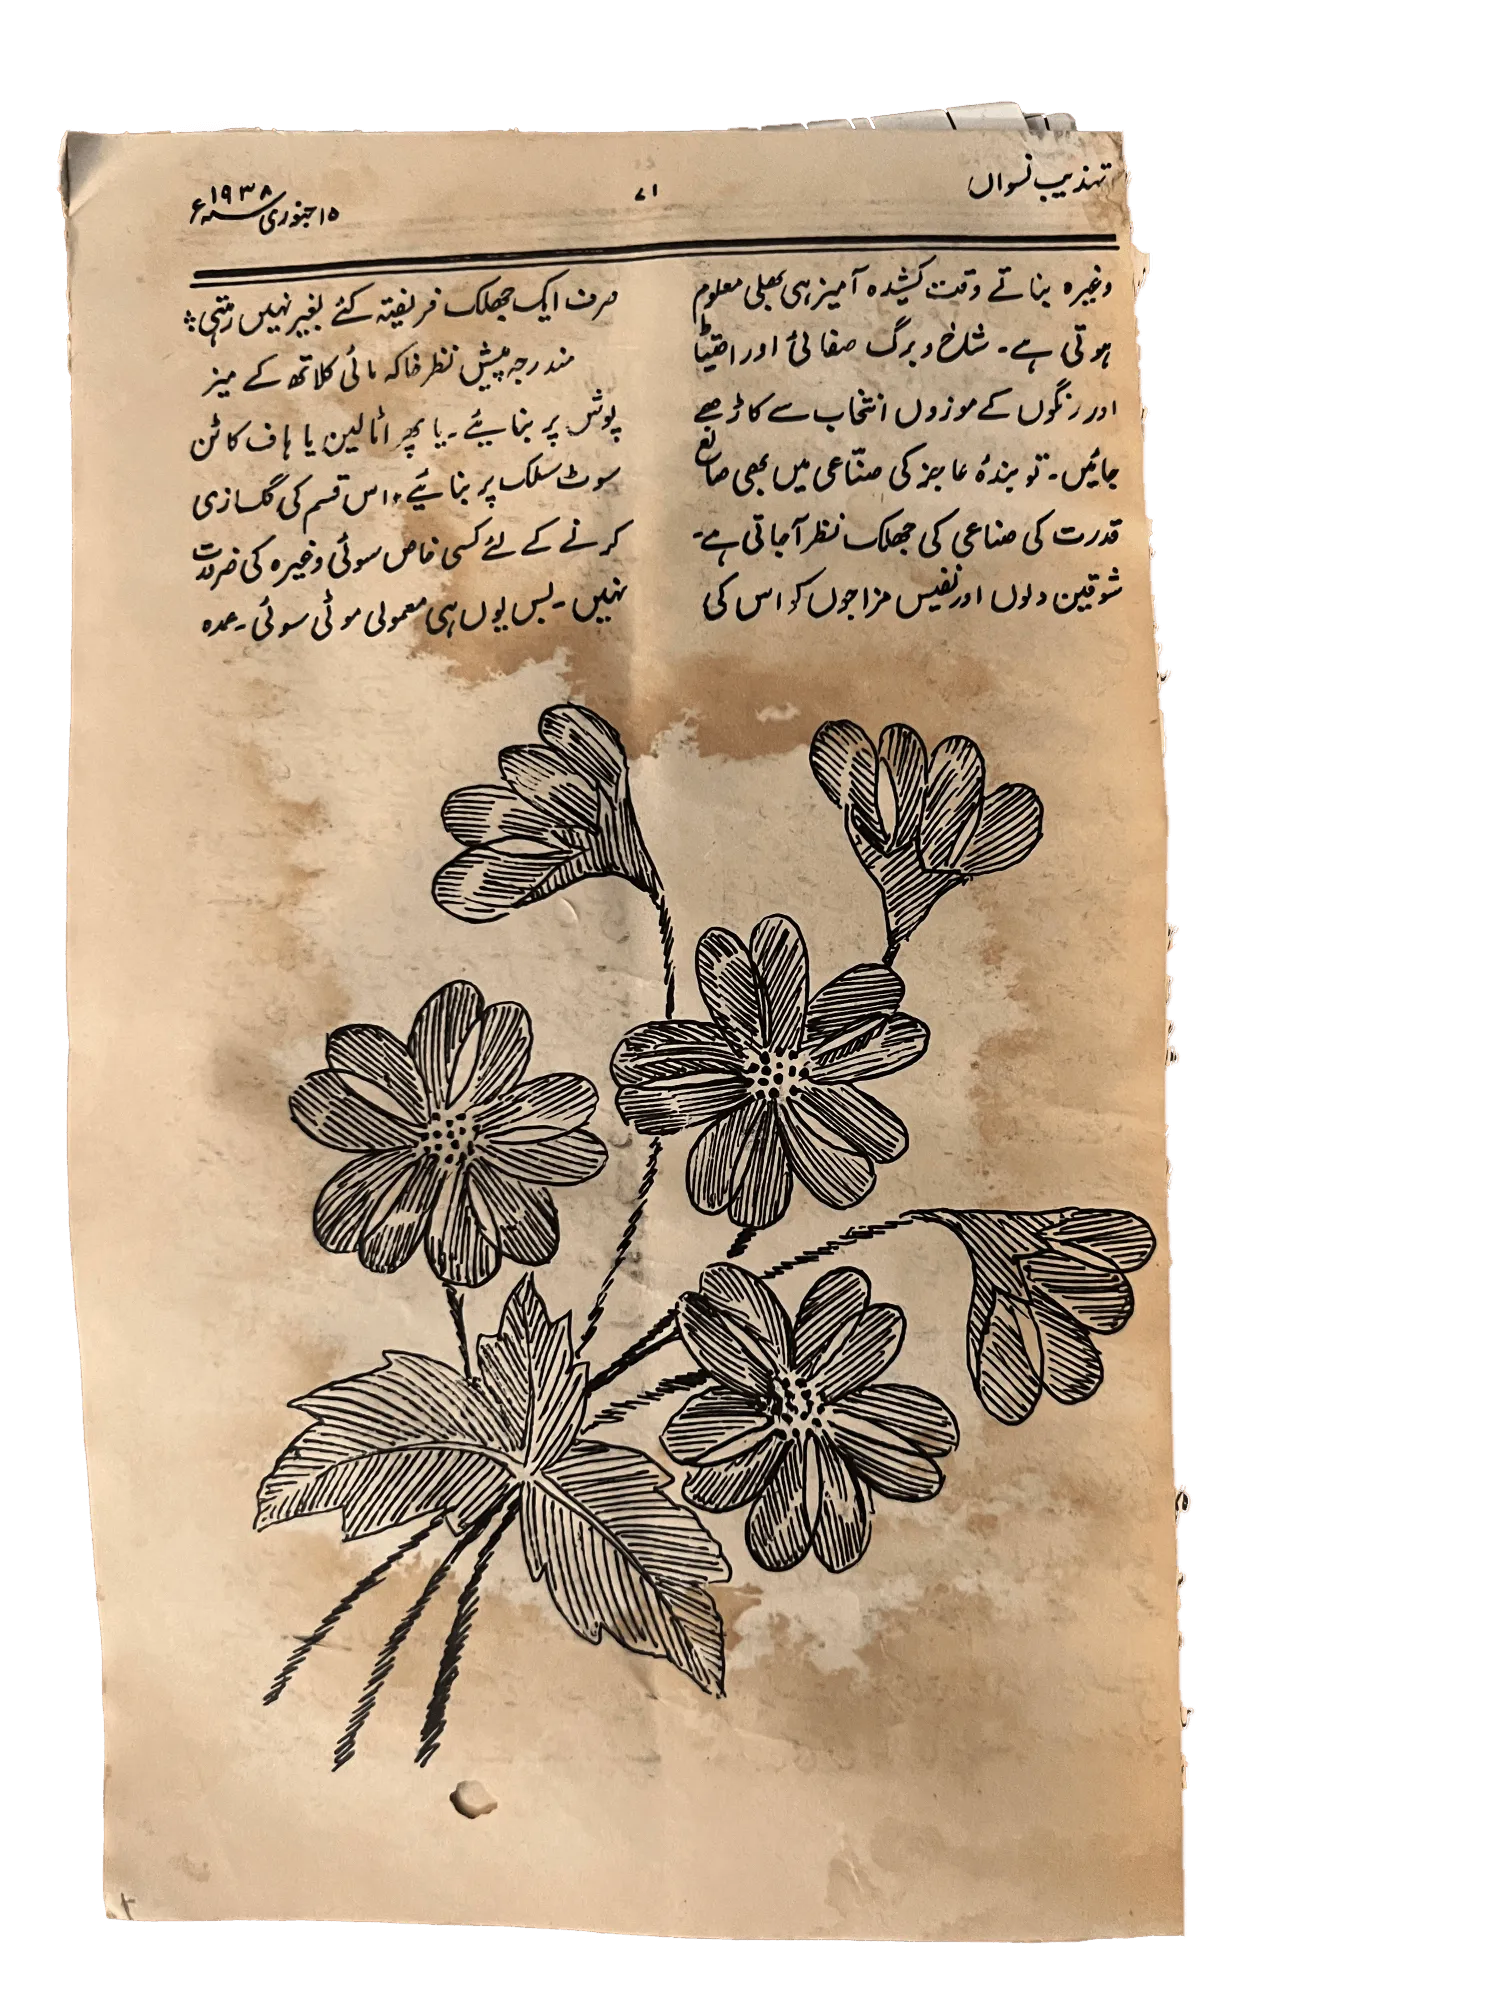 تہذیب نسواں
۷۱
۱۵ جنوری سنہ ۱۹۳۸ء
وغیرہ بناتے وقت کشیدہ آمیز ہی بھلی معلوم
ہوتی ہے۔ شاخ و برگ صفائی اور احتیاط
اور رنگوں کے موزوں انتخاب سے کاڑھے
جائیں۔ تو بندۂ عاجز کی صنّاعی میں بھی صانع
قدرت کی صناعی کی جھلک نظر آجاتی ہے۔
شوقین دلوں اور نفیس مزاجوں کو اس کی
صرف ایک جھلک فریفتہ کئے بغیر نہیں رہتی۔
مندرجہ پیش نظر خاکہ ہائی کلاتھ کے میز
پوش پر بنایئے۔ یا پھر اٹالین یا ہاف کاٹن
سوٹ سلک پر بنایئے، اس قسم کی گلسازی
کرنے کے لئے کسی خاص سوئی وغیرہ کی ضرورت
نہیں۔ بس یوں ہی معمولی موٹی سوئی۔ عمدہ